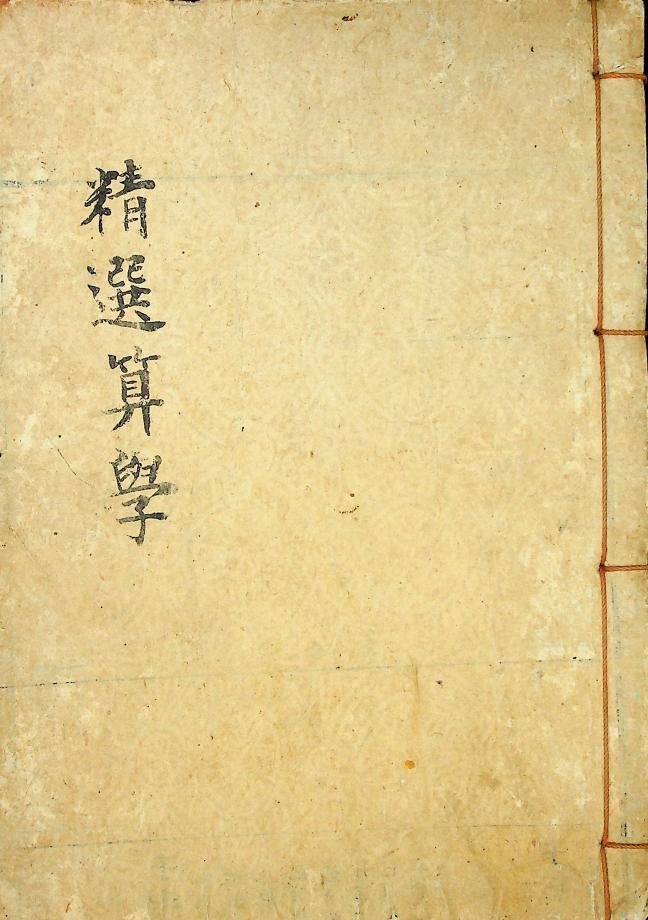 精選算學